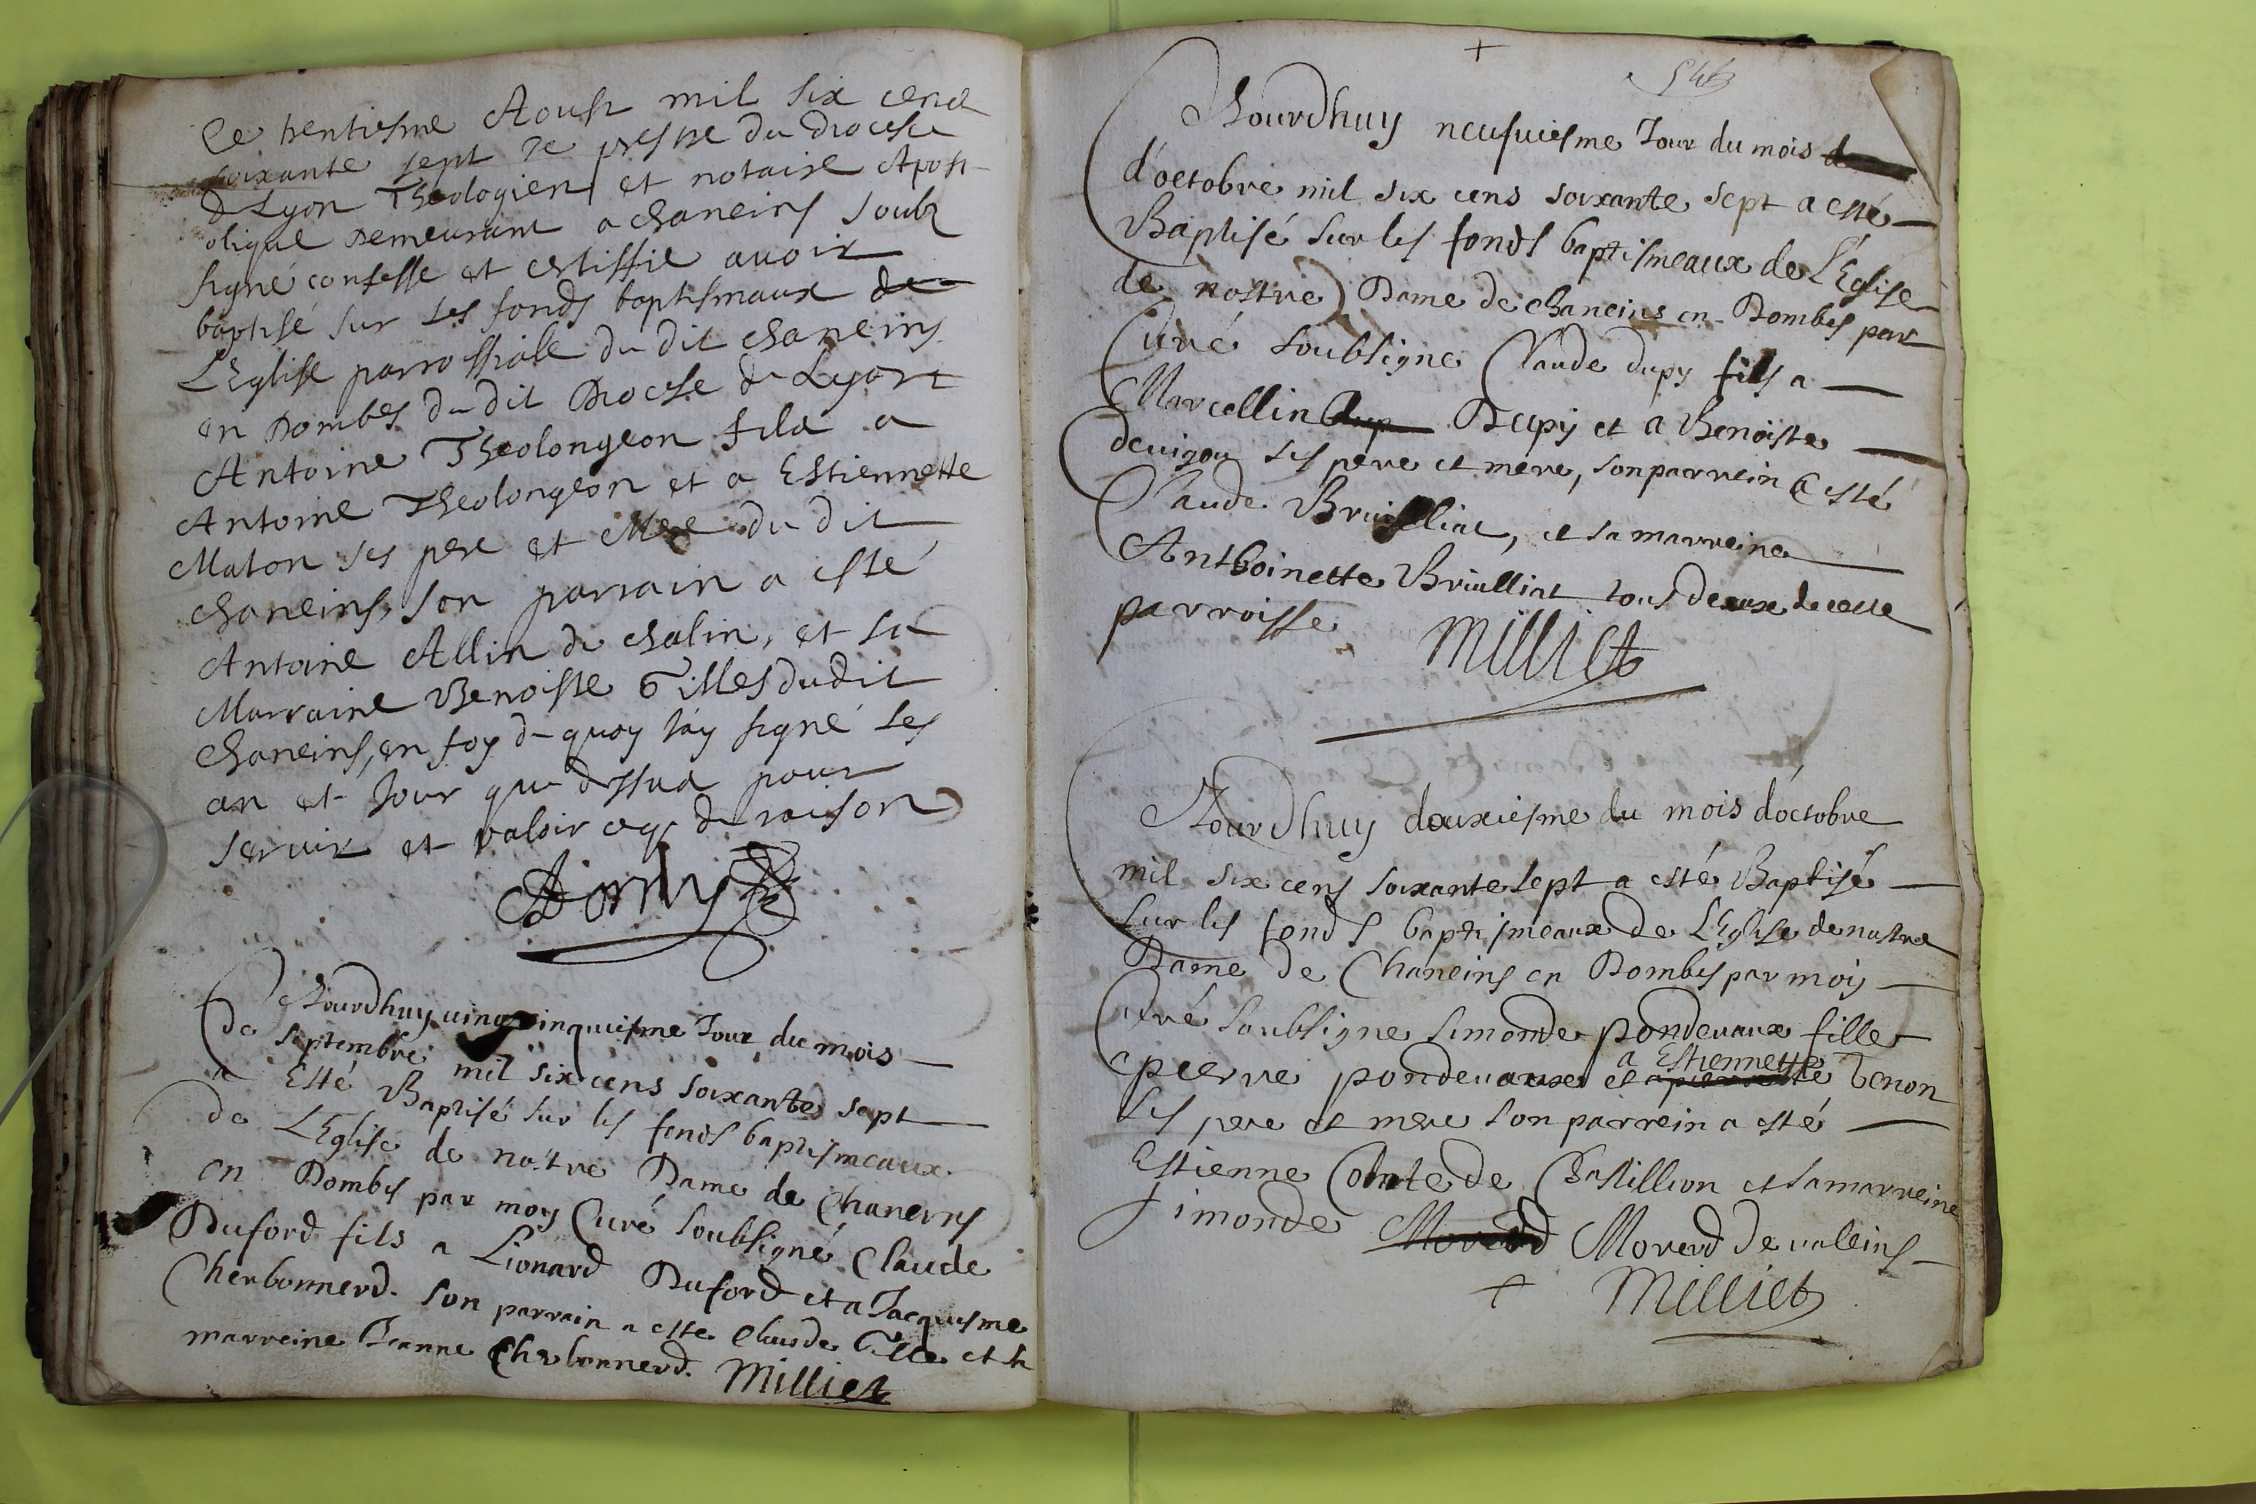 Ce trentiesme Aoust mil six cent
soixante sept Je prestre du diocese
de Lyon Theologien et notaire Apost-
olique demeurant a chaneins soubz
signé confesse et certiffie avoir
baptisé sur les fonds baptismaux de
L'Eglise parrossiale du dit chaneins
en Dombes du dit Diocese de Lyon
Antoine Theolongeon fils a
Antoine Theolongeon et a Estiennette
Maton ses pere et Mere du dit
chaneins, son parrain a esté
Antoine Allin de chalin, et sa
Marraine Benoiste Gilles dudit
Chaneins, en foy de quoy j'ay signé les
an et Jour que dessus pour
servir et valoir ce que de raison
Jourdhuy vingt cinquiesme Jour du mois
de septembre mil six cens soixante sept
a Esté Baptisé sur les fonds baptismeaux
de L'Eglise de nostre Dame de Chaneins
en Dombes par moy Curé soubsigné Claude
Duford fils a Lionard Duford et a Jacquesme
Cherbonnerd. son parrain a esté Claude Gille et sa
marreine Jeanne Cherbonnerd. Milliet
+
546
Jourdhuy neufuiesme Jour du mois de
d'octobre mil six cens soixante sept a esté
Baptisé sur les fonds baptismeaux de L'Eglise
de nostre Dame de chaneins en Dombes par
Curé soubsigne Claude dupy fils a
Marcellin Dupy et a Benoiste
devigon ses pere et mere, son parrein a esté
Claude Bruilliat, et sa marreine
Anthoinette Bruilliat tous deux de ceste
parroisse Milliet
Jourdhuy douxiesme du mois d'octobre
mil six cens soixante sept a esté Baptisé
sur les fonds baptismeaux de L'Eglise de nostre
Dame de Chaneins en Dombes par moy
Curé soubsigne simonde pondevaux fille
a pierre pondevaux et a Estiennette Benon
ses pere et mere son parrein a esté
Estienne Comte de Chastillion et sa marreine
simonde Moverd Moverd de valeins
+ Milliet